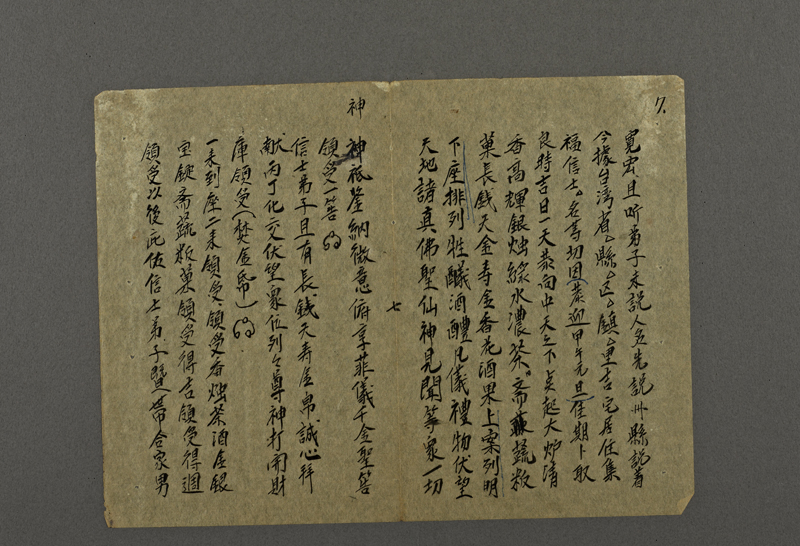 7.
寬宏且听弟子未說人名先說州縣說着
今據台湾省△縣△区△鎮△里吉宅居住集
福信士△名等切因(恭迎甲午元旦)佳期卜取
良時吉日一天恭向中天之下貞起大炉清
香高輝銀烛綠水濃茶斋蔬粄
菓長銭天金寿金香花酒果上案列明
下座排列牲醎酒醴凡儀禮物伏望
天地諸真佛聖仙神見聞等衆一切
七
神
神祇鑒納微意俯享菲儀千金聖筶
領受一筶
信士弟子且有長銭天寿金帛誠心拜
献丙丁化交伏望衆位列々尊神打開財
庫領受(焚金帋)
一来到座二来領受領受香烛茶酒金銀
宝錠斋蔬粄菓領受得吉領受得週
領受以後庇佑信士弟子暨帶合家男